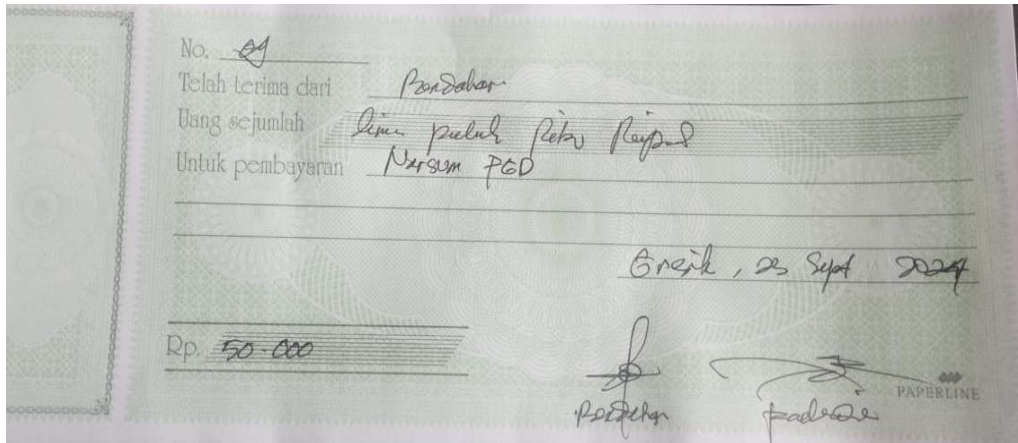 No. 09
Telah terima dari Bendahara
Uang sejumlah lima puluh Ribu Rupiah
Untuk pembayaran Narsum PGD
Gresik, 25 Sept 2024
Rp. 50.000
PAPERLINE
Bendahara